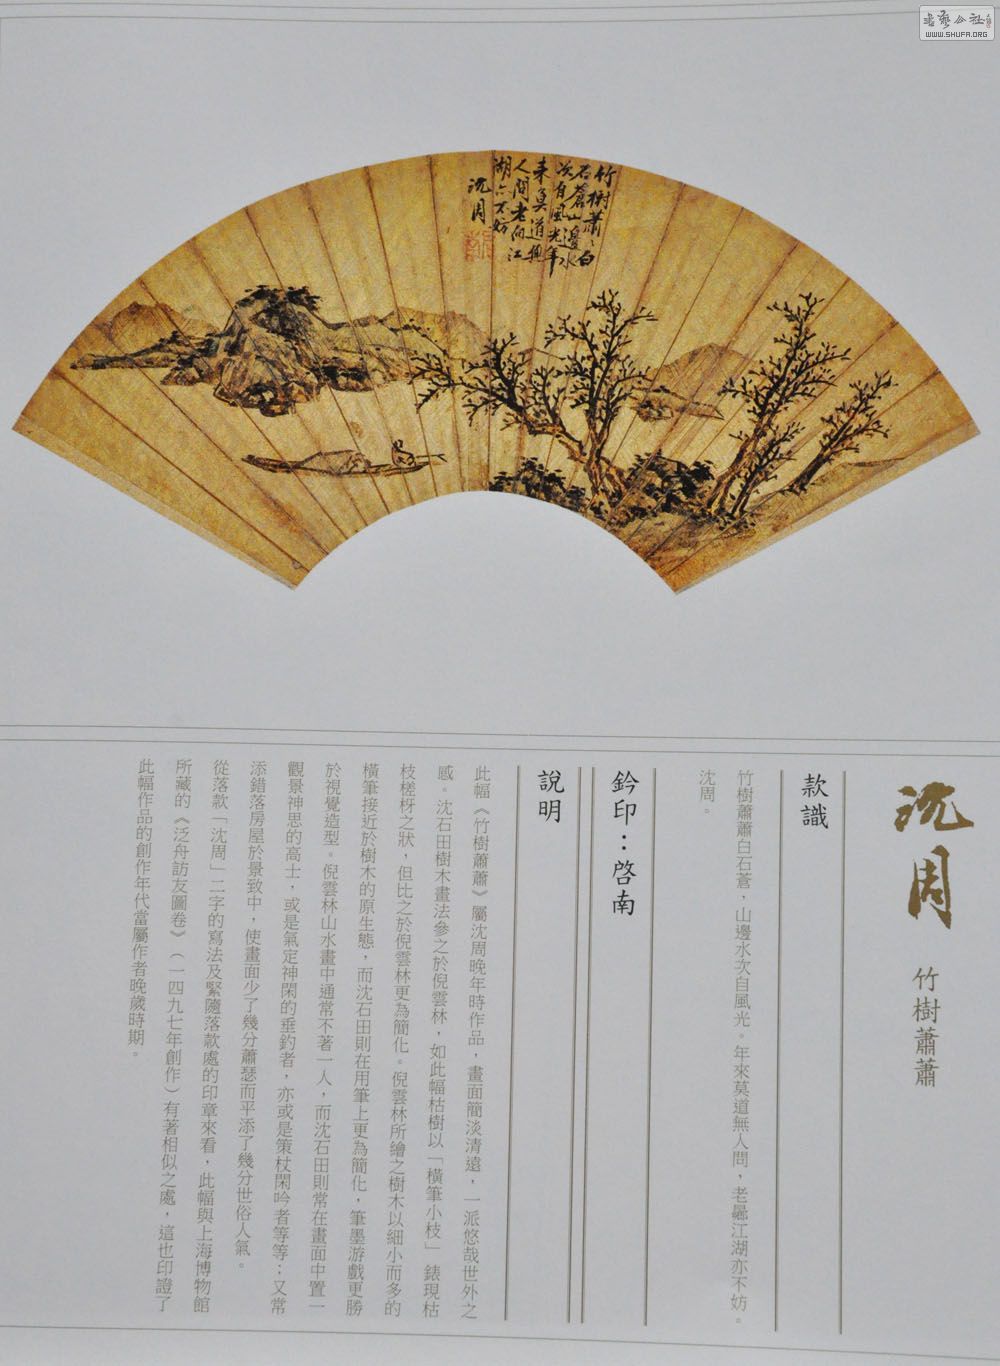 書藝公社
WWW.SHUFA.ORG
竹樹蕭〻白
石蒼山邊水
次自風光年
来莫道無
人問老向江
湖亦不妨
沈周
沈周
竹樹蕭蕭
款識
竹樹蕭蕭白石蒼，山邊水次自風光。年來莫道無人問，老曏江湖亦不妨。
沈周。
鈐印：啓南
說明
此幅《竹樹蕭蕭》屬沈周晚年時作品，畫面簡淡清遠，一派悠哉世外之
感。沈石田樹木畫法參之於倪雲林，如此幅枯樹以「橫筆小枝」錶現枯
枝槎枒之狀，但比之於倪雲林更為簡化。倪雲林所繪之樹木以細小而多的
橫筆接近於樹木的原生態，而沈石田則在用筆上更為簡化，筆墨游戲更勝
於視覺造型。倪雲林山水畫中通常不著一人，而沈石田則常在畫面中置一
觀景神思的高士，或是氣定神閑的垂釣者，亦或是策杖閑吟者等等；又常
添錯落房屋於景致中，使畫面少了幾分蕭瑟而平添了幾分世俗人氣。
從落款「沈周」二字的寫法及緊隨落款處的印章來看，此幅與上海博物館
所藏的《泛舟訪友圖卷》（一四九七年創作）有著相似之處，這也印證了
此幅作品的創作年代當屬作者晚歲時期。